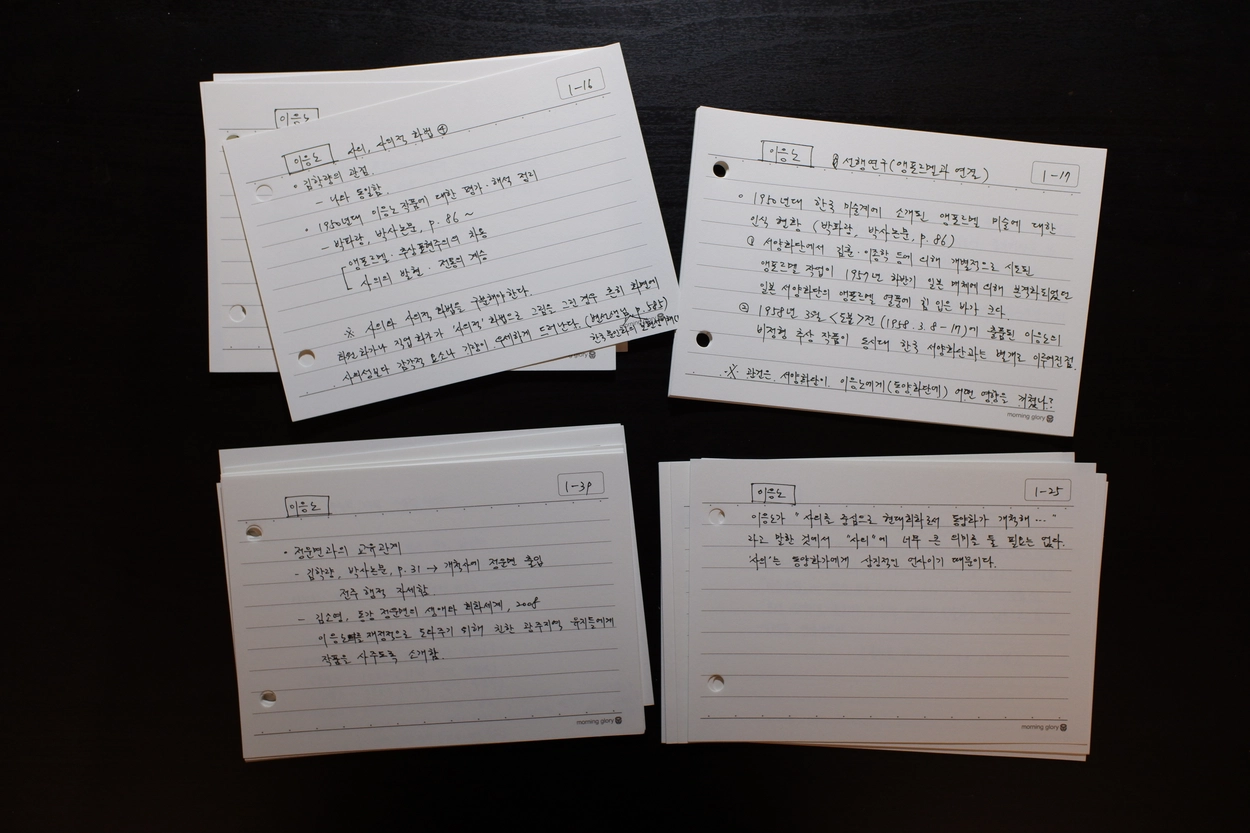 이응노
1-16
이응노 사의, 사의적 화법 ④
• 김학량의 관점.
- 나와 동일함.
• 1950년대 이응노 작품에 대한 평가·해석 정리
- 박파랑, 박사논문, p. 86 ~
앵포르멜·추상표현주의의 차용
사의의 발현·전통의 계승
※ 사의와 사의적 화법을 구분해야 한다.
화원화가나 직업화가가 '사의적' 화법으로 그림을 그린 경우 흔히 화면에
사의성보다 감각적 요소나 기량이 우세하게 드러난다. (변선생님, p. 585)
한국 문인화의
1-17
이응노 선행연구(앵포르멜과 연결)
• 1950년대 한국 미술계에 소개된 앵포르멜 미술에 대한
인식 현황 (박파랑, 박사논문, p. 86)
① 서양화단에서 김훈·이종학 등에 의해 개별적으로 시도된
앵포르멜 작업이 1957년 하반기 일본 매체에 의해 본격화되었던
일본 서양화단의 앵포르멜 열풍에 힘 입은 바가 크다.
② 1958년 3월 <도불>전 (1958. 3. 8-17)에 출품된 이응노의
비정형 추상 작품이 동시대 한국 서양화단과는 별개로 이루어진 점.
※ 관건은, 서양화단이 이응노에게(동양화단에) 어떤 영향을 끼쳤나?
morning glory
1-39
이응노
• 정운면과의 교유관계
- 김학량, 박사논문, p. 31 → 개척사에 정운면 출입
전주 행적 자세함.
- 김소영, 동강 정운면의 생애와 회화세계, 2008
이응노를 재정적으로 도와주기 위해 친한 광주지역 유지들에게
작품을 사주도록 소개함.
morning glory
1-25
이응노
이응노가 "사의를 중심으로 현대회화로서 동양화가 개척해 ..."
라고 말한 것에서 "사의"에 너무 큰 의미를 둘 필요는 없다.
'사의'는 동양화가에게 상징적인 언사이기 때문이다.
morning glory